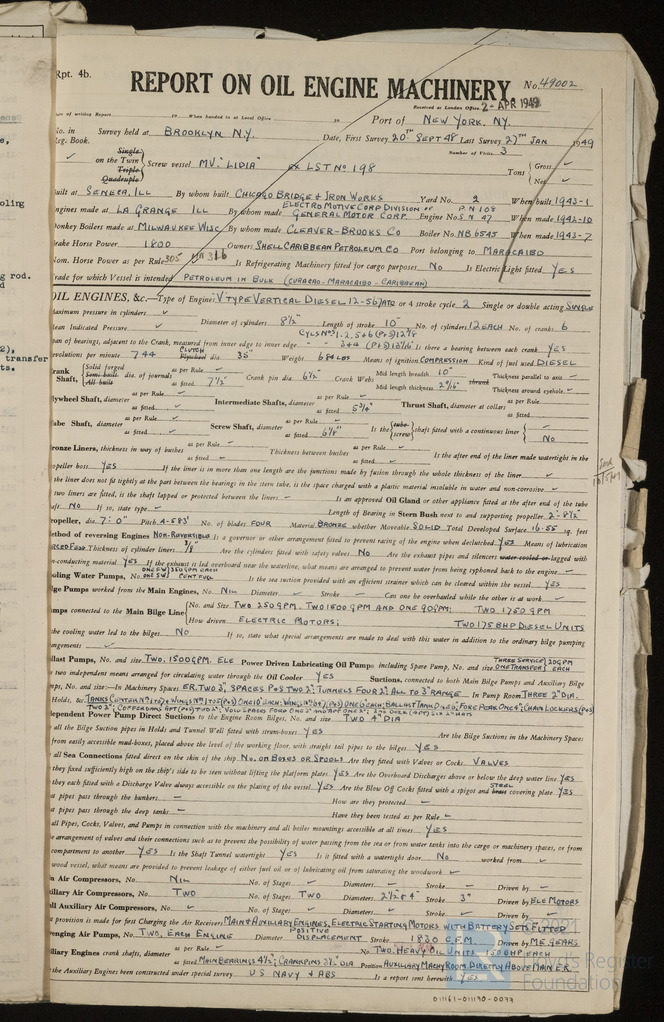 Rpt. 4b.
REPORT ON OIL ENGINE MACHINERY.
No. 49002
Received at London Office 2-APR 1949
Port of NEW YORK. N.Y.
Survey held at BROOKLYN N.Y. Date, First Survey 20TH SEPT 48 Last Survey 27TH JAN 1949
Reg. Book. Number of Visits 3
Single
on the Twin
Triple
Quadruple
Screw vessel MV. "LIDIA" EX LST No 198 Tons Gross Net
Built at SENECA, ILL By whom built CHICAGO BRIDGE & IRON WORKS Yard No. 2 When built 1943-1
Engines made at LA GRANGE ILL By whom made ELECTROMOTIVE CORP DIVISION OF GENERAL MOTOR CORP. Engine No. S.N 47 P.N 108 When made 1942-10
Donkey Boilers made at MILWAUKEE WISC By whom made CLEAVER-BROOKS CO Boiler No. NB 6545 When made 1943-7
Brake Horse Power 1800 Owners SHELL CARIBBEAN PETROLEUM CO Port belonging to MARACAIBO
Nom. Horse Power as per Rule 305 Is Refrigerating Machinery fitted for cargo purposes. NO Is Electric Light fitted YES
Trade for which Vessel is intended PETROLEUM IN BULK (CURACAO-MARACAIBO-CARIBBEAN)
OIL ENGINES, &c.—Type of Engines V TYPE VERTICAL DIESEL 12-567ATR 2 or 4 stroke cycle 2 Single or double acting SINGLE
Maximum pressure in cylinders Diameter of cylinders 8½" Length of stroke 10" No. of cylinders 12 EACH No. of cranks 6
Mean Indicated Pressure
Span of bearings, adjacent to the Crank, measured from inner edge to inner edge Is there a bearing between each crank YES
Revolutions per minute 744 CLUTCH Flywheel dia. 35" Weight 684 LBS Means of ignition COMPRESSION Kind of fuel used DIESEL
Crank Shaft, Solid forged Semi built All built dia. of journals as per Rule as fitted 7½" Crank pin dia. 6½" Crank Webs Mid length breadth 10" Mid length thickness shrunk Thickness parallel to axis Thickness around eyehole
Flywheel Shaft, diameter as per Rule as fitted Intermediate Shafts, diameter as per Rule as fitted 5¾" Thrust Shaft, diameter at collars as per Rule as fitted
Tube Shaft, diameter as per Rule as fitted Screw Shaft, diameter as per Rule as fitted 6⅛" Is the tube screw shaft fitted with a continuous liner NO
Bronze Liners, thickness in way of bushes as per Rule as fitted Thickness between bushes as per Rule as fitted Is the after end of the liner made watertight in the
propeller boss YES If the liner is in more than one length are the junctions made by fusion through the whole thickness of the liner
If the liner does not fit tightly at the part between the bearings in the stern tube, is the space charged with a plastic material insoluble in water and non-corrosive
If two liners are fitted, is the shaft lapped or protected between the liners Is an approved Oil Gland or other appliance fitted at the after end of the tube
shaft NO If so, state type Length of Bearing in Stern Bush next to and supporting propeller 2'-8½"
Propeller, dia. 7'-0" Pitch 4.583' No. of blades FOUR Material BRONZE whether Moveable SOLID Total Developed Surface 16.55 sq. feet
Method of reversing Engines NON-REVERSIBLE Is a governor or other arrangement fitted to prevent racing of the engine when declutched YES Means of lubrication
FORCED FEED Thickness of cylinder liners Are the cylinders fitted with safety valves NO Are the exhaust pipes and silencers water cooled or lagged with
non-conducting material YES If the exhaust is led overboard near the waterline, what means are arranged to prevent water from being syphoned back to the engine
Cooling Water Pumps, No. Is the sea suction provided with an efficient strainer which can be cleared within the vessel YES
Bilge Pumps worked from the Main Engines, No. NIL Diameter Stroke Can one be overhauled while the other is at work
Pumps connected to the Main Bilge Line No. and Size TWO 250 GPM. TWO 1500 GPM AND ONE 90 GPM; TWO 1750 GPM
How driven ELECTRIC MOTORS; TWO 175 BHP DIESEL UNITS
Is the cooling water led to the bilges NO If so, state what special arrangements are made to deal with this water in addition to the ordinary bilge pumping
arrangements
Ballast Pumps, No. and size TWO, 1500 GPM. ELE Power Driven Lubricating Oil Pumps including Spare Pump, No. and size THREE SERVICE ONE TRANSFER 20 GPM EACH
Are two independent means arranged for circulating water through the Oil Cooler YES Suctions, connected to both Main Bilge Pumps and Auxiliary Bilge
Pumps, No. and size:—In Machinery Spaces In Pump Room THREE 2" DIA.
Independent Power Pump Direct Suctions to the Engine Room Bilges, No. and size TWO 4" DIA
Are all the Bilge Suction pipes in Holds and Tunnel Well fitted with strum-boxes YES Are the Bilge Suctions in the Machinery Spaces
from easily accessible mud-boxes, placed above the level of the working floor, with straight tail pipes to the bilges YES
Are all Sea Connections fitted direct on the skin of the ship NO, ON BOXES OR SPOOLS Are they fitted with Valves or Cocks VALVES
Are they fixed sufficiently high on the ship's side to be seen without lifting the platform plates YES Are the Overboard Discharges above or below the deep water line YES
Are they each fitted with a Discharge Valve always accessible on the plating of the vessel YES Are the Blow Off Cocks fitted with a spigot and STEEL brass covering plate YES
What pipes pass through the bunkers How are they protected
What pipes pass through the deep tanks Have they been tested as per Rule
Are all Pipes, Cocks, Valves, and Pumps in connection with the machinery and all boiler mountings accessible at all times YES
Is the arrangement of valves and their connections such as to prevent the possibility of water passing from the sea or from water tanks into the cargo or machinery spaces, or from
one compartment to another YES Is the Shaft Tunnel watertight YES Is it fitted with a watertight door NO worked from
If a wood vessel, what means are provided to prevent leakage of either fuel oil or of lubricating oil from saturating the woodwork
Main Air Compressors, No. NIL No. of Stages Diameters Stroke Driven by
Auxiliary Air Compressors, No. TWO No. of Stages TWO Diameters 2½ & 4" Stroke 3" Driven by ELE MOTORS
Small Auxiliary Air Compressors, No. No. of Stages Diameters Stroke Driven by
What provision is made for first Charging the Air Receivers MAIN & AUXILIARY ENGINES, ELECTRIC STARTING MOTORS WITH BATTERY SETS FITTED
Scavenging Air Pumps, No. TWO, EACH ENGINE Diameter POSITIVE DISPLACEMENT Stroke 1830 C.F.M. Driven by M.E. GEARS
Auxiliary Engines crank shafts, diameter as per Rule as fitted MAIN BEARINGS 4½"; CRANKPINS No. TWO. HEAVY OIL UNITS BHP EACH
Position AUXILIARY MACHY ROOM DIRECTLY ABOVE MAIN E.R.
Have the Auxiliary Engines been constructed under special survey US NAVY & ABS Is a report sent herewith YES
011161-011190-0099
© 2021
Lloyd's Register
Foundation
oling
g rod.
d
2),
transfer
ts.